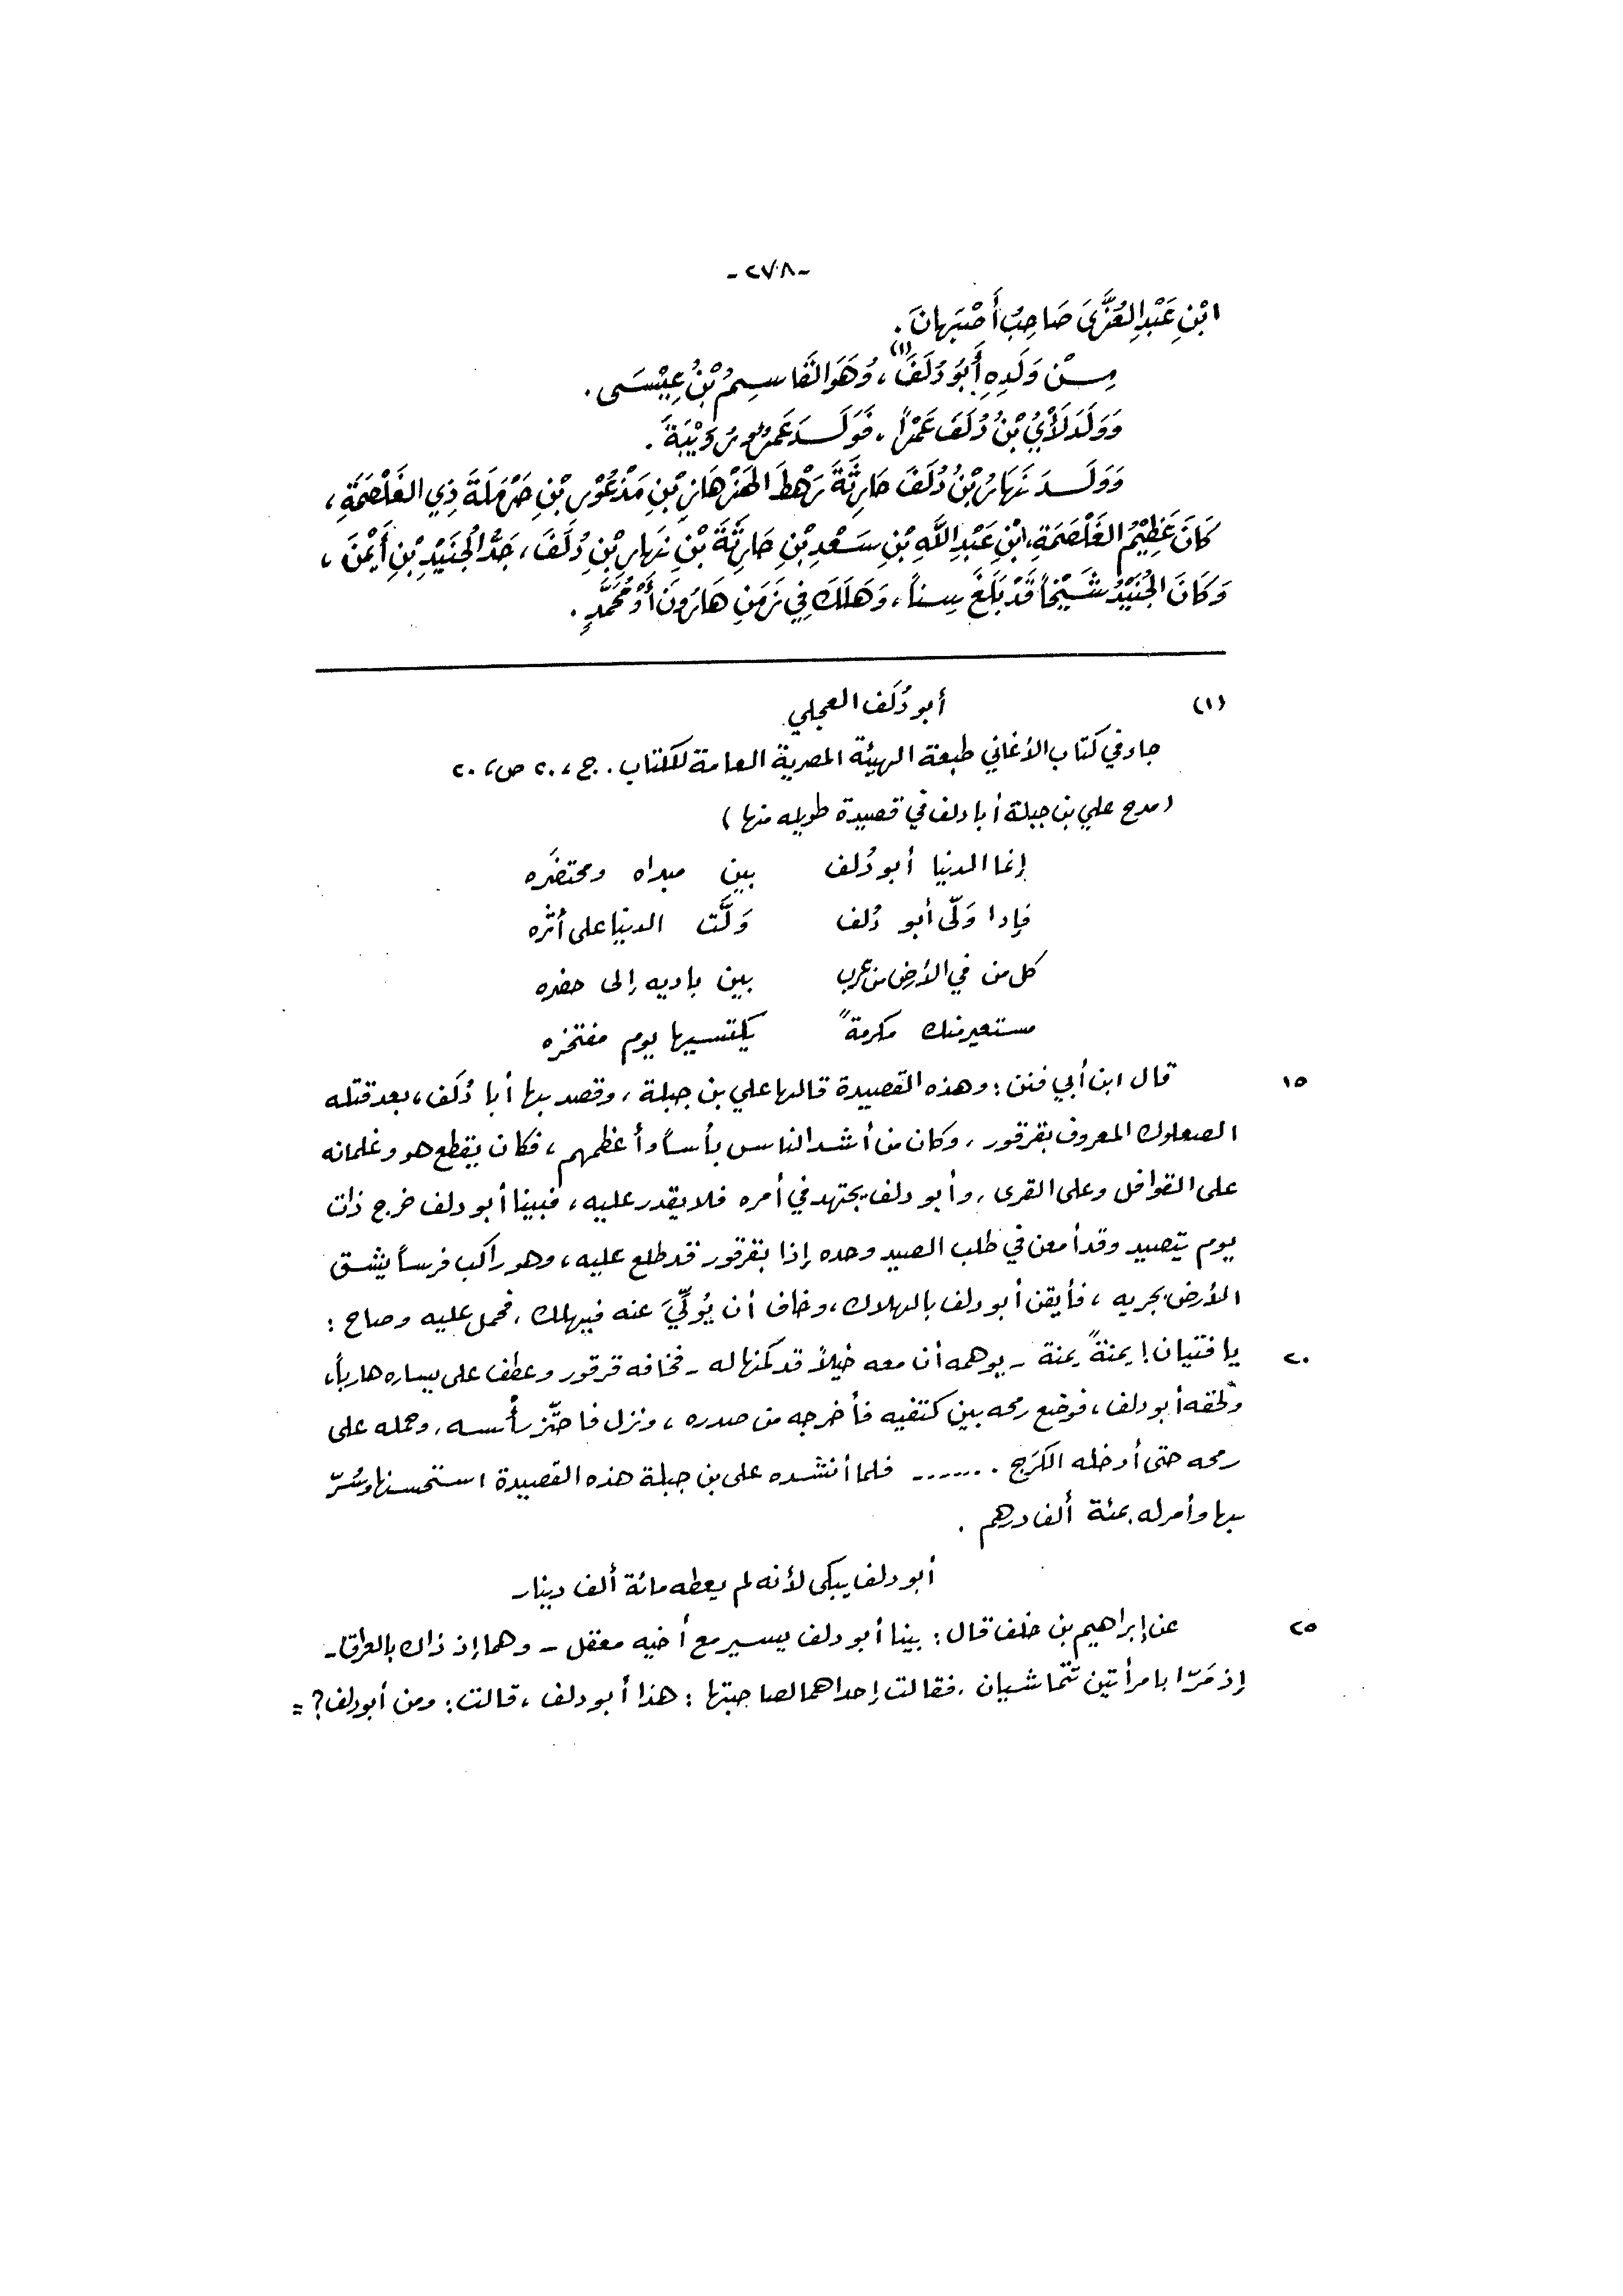 -٢٧٨-
ابْنِ عَبْدِ العُزَّى صَاحِبُ أَصْبَهانَ.
مِنْ وَلَدِهِ أَبُو دُلَفَ(١)، وَهُوَ القَاسِمُ بْنُ عِيْسَى.
وَوَلَدَ لَأْيُ بْنُ دُلَفَ عَمْرَاً، فَوَلَدَ عَمْرٌو رُوَيْبَةَ.
وَوَلَدَ نَهَارُ بْنُ دُلَفَ حَارِثَةَ رَهْطَ الهَزْهَازِ بْنِ مَذْعُوْرِ بْنِ حَرْمَلَةَ ذِي الغَلْصَمَةِ،
كَانَ عَظِيْمُ الغَلْصَمَةِ، ابْنِ عَبْدِ اللَّهِ بْنِ سَعْدِ بْنِ حَارِثَةَ بْنِ نَهارِ بْنِ دُلَفَ، جَدُّ الجُنَيْدِ بْنِ أَيْمَنَ،
وَكَانَ الجُنَيْدُ شَيْخَاً قَدْ بَلَغَ سِناً، وَهَلَكَ فِي زَمَنِ هَارُونَ أَوْ مُحَمَّدٍ.
(١) أبو دُلَف العجلي
جاء في كتاب الأغاني طبعة الهيئة المصرية العامة للكتاب. ج، ٢٠ ص، ٢٠
(مدح علي بن جبلة أبا دلف في قصيدة طويله منها)
إنما الدنيا أبو دُلف بين مبداه ومحتضَره
فإدا وَلّى أبو دُلف وَلَّت الدنيا على أَثره
كل من في الأرض من عرب بين باديه إلى حضره
مستعير منك مكرمةً يكتسيها يوم مفتخره
١٥ قال ابن أبي فنن: وهذه القصيدة قالها علي بن جبلة، وقصد بها أبا دُلَف، بعد قتله
الصعلوك المعروف بقرقور، وكان من أشد الناس بأساً وأعظمهم، فكان يقطع هو وغلمانه
على القوافل وعلى القرى، وأبو دلف يجتهد في أمره فلا يقدر عليه، فبينا أبو دلف خرج ذات
يوم يتصيد وقد أمعن في طلب الصيد وحده إذا بقرقور قد طلع عليه، وهو راكب فرساً يشق
الأرض بجريه، فأيقن أبو دلف بالهلاك، وخاف أن يُولِّيَ عنه فيهلك، فحمل عليه وصاح:
٢٠ يا فتيان! يمنةً يمنة - يوهمه أن معه خيلاً قد كمنها له - فخافه قرقور وعطف على يساره هارباً،
ولحقه أبو دلف، فوضع رمحه بين كتفيه فأخرجه من صدره، ونزل فاحتّز رأسه، وحمله على
رمحه حتى أدخله الكَرَج . ...... فلما أنشده علي بن جبلة هذه القصيدة استحسنها وسُرّ
بها وأمر له بمئة ألف درهم.
أبو دلف يبكى لأنه لم يعطه مائة ألف دينار
٢٥ عن إبراهيم بن خلف قال: بينا أبو دلف يسير مع أخيه معقل - وهما إذ ذاك بالعراق -
إذ مَرّا بامرأتين تتماشيان، فقالت إحداهما لصاحبتها: هذا أبو دلف، قالت: ومن أبو دلف؟ =